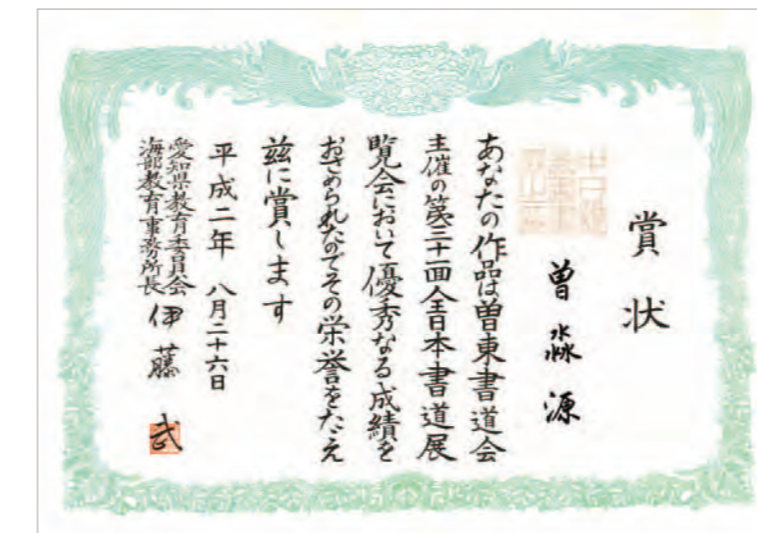 賞状
曽淼源
あなたの作品は曽東書道会
主催の第三十回全日本書道展
覧会において優秀なる成績を
おさめられたのでその栄誉をたたえ
茲に賞します
平成二年 八月二十六日
愛知県教育委員会
海部教育事務所長 伊藤 武